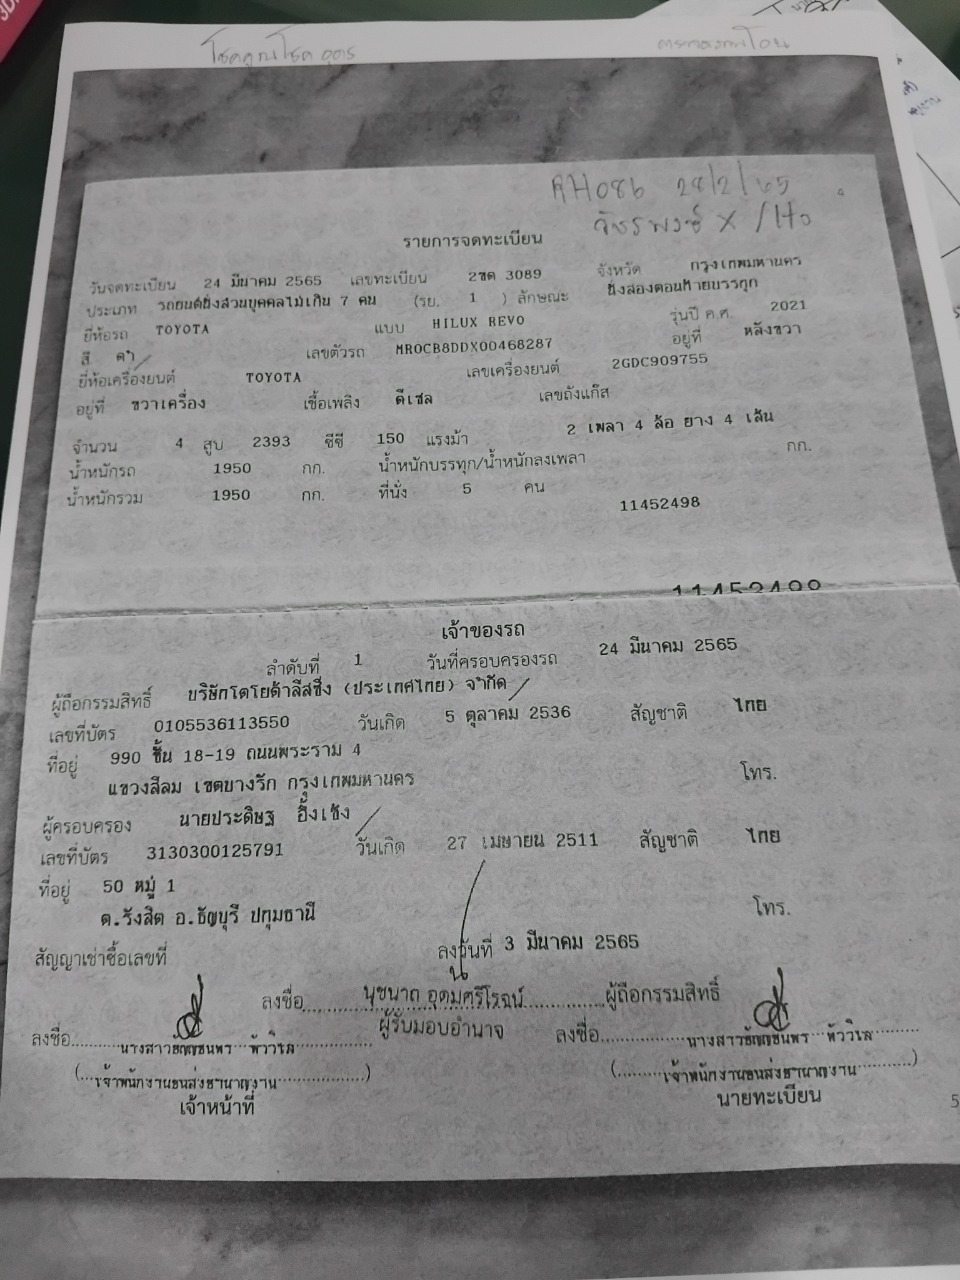 โชคคูณโชค
RH086 28/2/65
รายการจดทะเบียน
วันจดทะเบียน 24 มีนาคม 2565 เลขทะเบียน 2ขด 3089 จังหวัด กรุงเทพมหานคร
ประเภท รถยนต์นั่งส่วนบุคคลไม่เกิน 7 คน (รย. 1 ) ลักษณะ นั่งสองตอนท้ายบรรทุก
ยี่ห้อรถ TOYOTA แบบ HILUX REVO รุ่นปี ค.ศ. 2021
สี ดำ เลขตัวรถ MR0CB8DDX00468287 อยู่ที่ หลังขวา
ยี่ห้อเครื่องยนต์ TOYOTA เลขเครื่องยนต์ 2GDC909755
อยู่ที่ ขวาเครื่อง เชื้อเพลิง ดีเซล เลขถังแก๊ส
จำนวน 4 สูบ 2393 ซีซี 150 แรงม้า 2 เพลา 4 ล้อ ยาง 4 เส้น
น้ำหนักรถ 1950 กก. น้ำหนักบรรทุก/น้ำหนักลงเพลา กก.
น้ำหนักรวม 1950 กก. ที่นั่ง 5 คน
11452498
11452498
เจ้าของรถ
ลำดับที่ 1 วันที่ครอบครองรถ 24 มีนาคม 2565
ผู้ถือกรรมสิทธิ์ บริษัทโตโยต้าลีสซิ่ง (ประเทศไทย) จำกัด
เลขที่บัตร 0105536113550 วันเกิด 5 ตุลาคม 2536 สัญชาติ ไทย
ที่อยู่ 990 ชั้น 18-19 ถนนพระราม 4
แขวงสีลม เขตบางรัก กรุงเทพมหานคร โทร.
ผู้ครอบครอง นายประดิษฐ อึ้งเซ้ง
เลขที่บัตร 3130300125791 วันเกิด 27 เมษายน 2511 สัญชาติ ไทย
ที่อยู่ 50 หมู่ 1
ต.รังสิต อ.ธัญบุรี ปทุมธานี โทร.
สัญญาเช่าซื้อเลขที่ ลงวันที่ 3 มีนาคม 2565
ลงชื่อ นุชนาถ อุดมศรีโรจน์ ผู้ถือกรรมสิทธิ์
ผู้รับมอบอำนาจ
ลงชื่อ นางสาวธัญชนพร หัววิเล ลงชื่อ นางสาวธัญชนพร หัววิเล
(เจ้าพนักงานขนส่งชำนาญงาน) (เจ้าพนักงานขนส่งชำนาญงาน)
เจ้าหน้าที่ นายทะเบียน